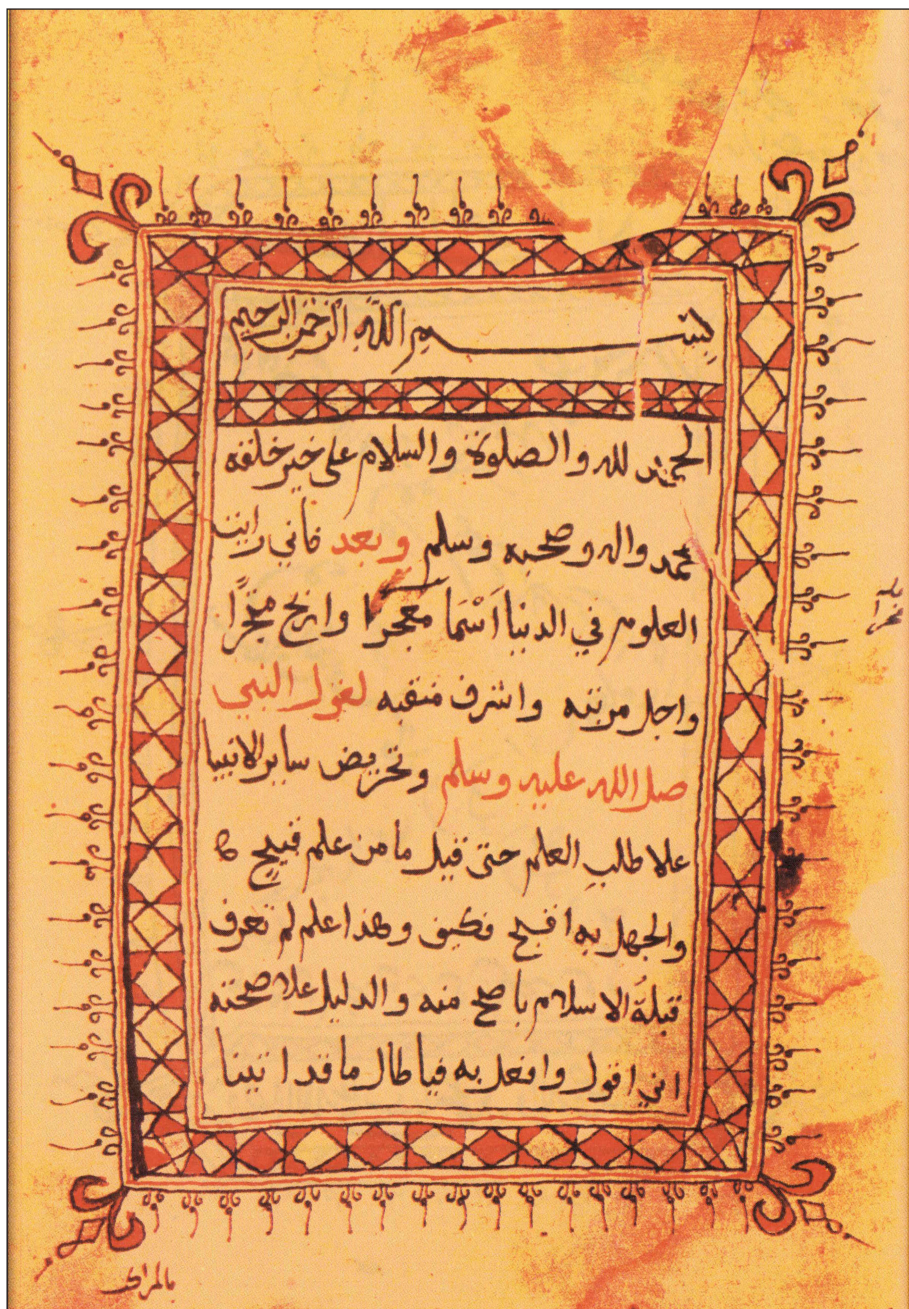 بسم الله الرحمن الرحيم
الحمد لله والصلوة والسلام على خير خلقه
محمد واله وصحبه وسلم وبعد فاني رايت
العلوم في الدنيا اسْمَا مفجرًا واربح متجرًا
واجل مرتبه واشرف منقبه لقول النبي
صل الله عليه وسلم وتحريض ساير الانبيا
علا طالب العلم حتى قيل ما من علم قبيح
والجهل به اقبح فكيف وهذا علم لم تعرف
قبلةُ الاسلام باصح منه والدليل علا صحته
اني اقول وافعل به فيا طال ما قد اتينا
بالمراكب